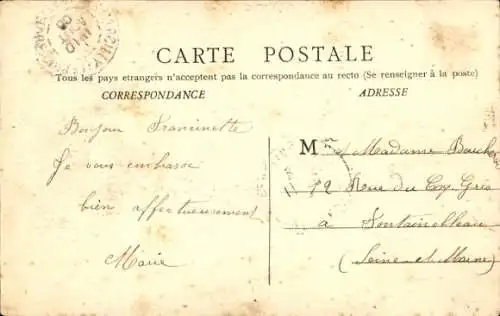 CARTE POSTALE
Tous les pays etrangers n'acceptent pas la correspondance au recto (Se renseigner à la poste)
CORRESPONDANCE
ADRESSE
Bonjour Francinette
Je vous embrasse
bien affectueusement
Marie
M et Madame
12 Rue du Coq Gris
à Fontainebleau
(Seine-et-Marne)